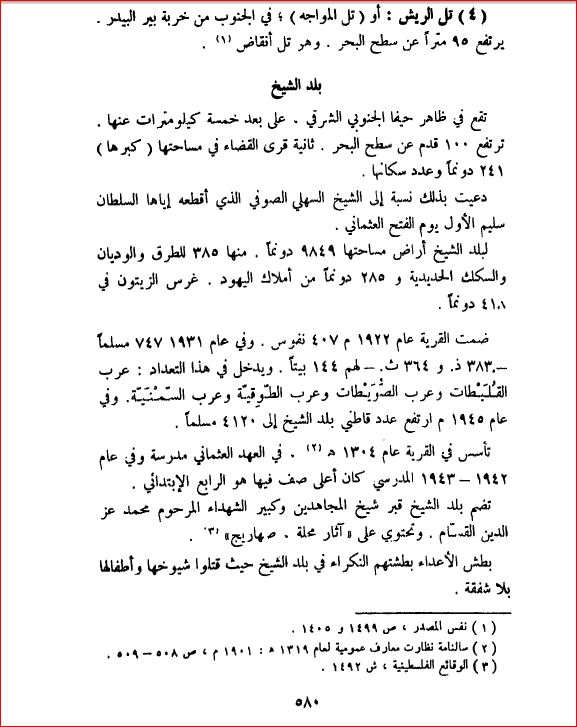 ( ٤ ) تل الريش : أو ( تل المواجه ) ؛ في الجنوب من خربة بير البيدر .
يرتفع ٩٥ متراً عن سطح البحر . وهو تل أنقاض (١) .
بلد الشيخ
تقع في ظاهر حيفا الجنوبي الشرقي . على بعد خمسة كيلومترات عنها .
ترتفع ١٠٠ قدم عن سطح البحر . ثانية قرى القضاء في مساحتها ( كبرها )
٢٤١ دونماً وعدد سكانها .
دعيت بذلك نسبة إلى الشيخ السهلي الصوفي الذي أقطعه إياها السلطان
سليم الأول يوم الفتح العثماني .
لبلد الشيخ أراض مساحتها ٩٨٤٩ دونماً . منها ٣٨٥ للطرق والوديان
والسكك الحديدية و ٢٨٥ دونماً من أملاك اليهود . غرس الزيتون في
دونماً .
ضمت القرية عام ١٩٢٢ م ٤٠٧ نفوس . وفي عام ١٩٣١ ٧٤٧ مسلماً
– ٣٨٣ ذ. و ٣٦٤ ث. – لهم ١٤٤ بيتاً . ويدخل في هذا التعداد : عرب
القُلَيْطات وعرب الصُّوَيْطات وعرب الطَّوقِيّة وعرب السمْنَيّة. وفي
عام ١٩٤٥ م ارتفع عدد قاطني بلد الشيخ إلى ٤١٢٠ مسلماً .
تأسس في القرية عام ١٣٠٤ ه (٢) . في العهد العثماني مدرسة وفي عام
١٩٤٢ – ١٩٤٣ المدرسي كان أعلى صف فيها هو الرابع الإبتدائي .
تضم بلد الشيخ قبر شيخ المجاهدين وكبير الشهداء المرحوم محمد عز
الدين القسّام . وتحتوي على « آثار محلة . صهاريج» (٣) .
بطش الأعداء بطشتهم النكراء في بلد الشيخ حيث قتلوا شيوخها وأطفالها
بلا شفقة .
( ١ ) نفس المصدر ، ص ١٤٩٩ و ١٤٠٥ .
( ٢ ) سالنامة نظارت معارف عمومية لعام ١٣١٩ ه : ١٩٠١ م ، ص ٥٠٨ – ٥٠٩ .
( ٣ ) الوقائع الفلسطينية ، ش ١٤٩٢ .
٥٨٠